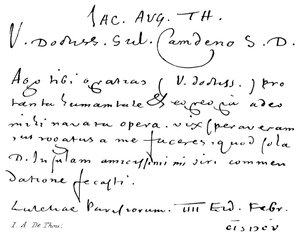 IAC. AVG. TH.
V. Doctiss. Gul. Camdeno S. D.
Ago tibi gratias (V. doctiss.) pro
tanta humanitate & egregia adeo
mihi navata opera. vix speraveram
rogatus a me faceres, quod sola
D. Insulam amicissimi mihi viri commen
datione fecisti.
Lutetiae Parisiorum. IIII Eid. Febr.
I. A De Thou.